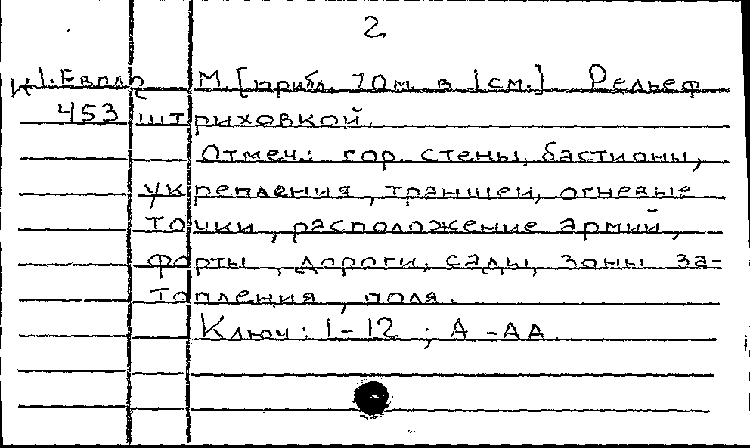 2
К 1. Евпл 2 М. [прибл. 70 м. в 1 см.] Рельеф
453 штриховкой.
Отмеч.: гор. стены, бастионы,
укрепления, траншеи, огневые
точки, расположение армий,
форты, дороги, сады, зоны за-
топления, поля.
Ключ: 1-12; А-АА.